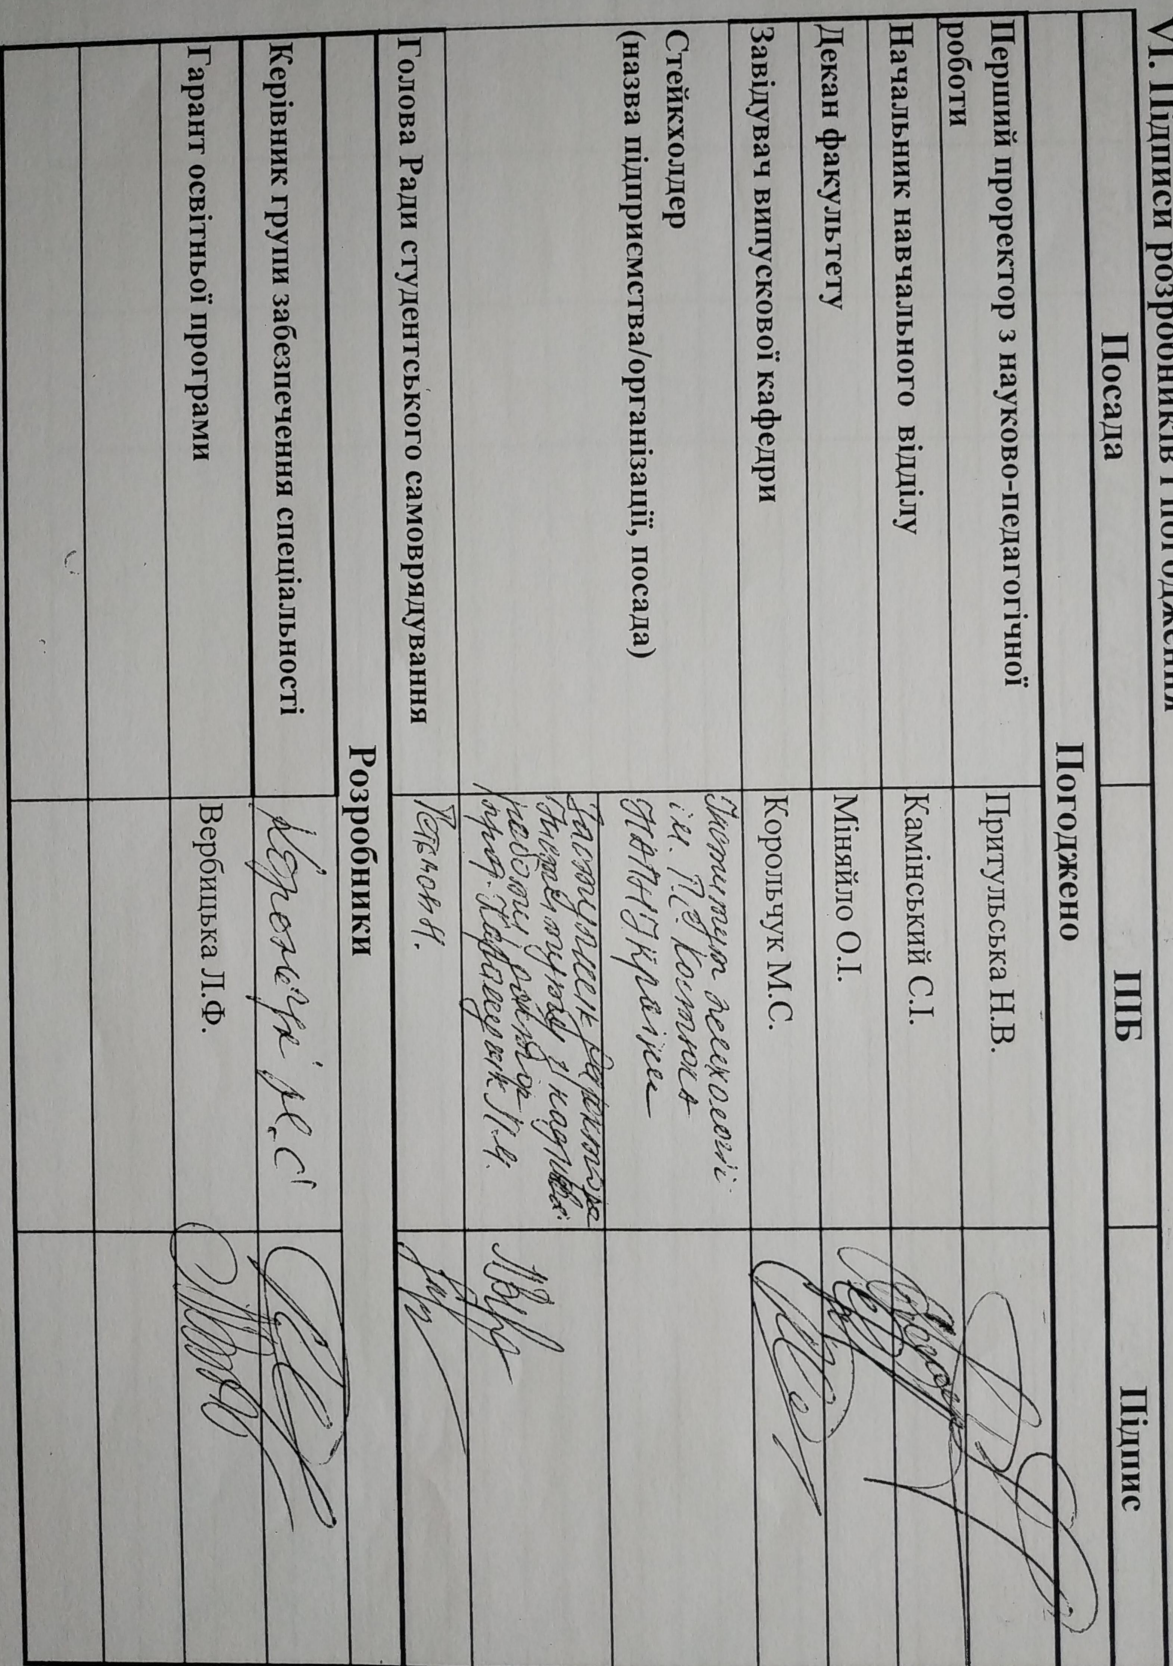 VI. Підписи розробників і погодження
Посада ПІБ Підпис
Погоджено
Перший проректор з науково-педагогічної
роботи
Притульська Н.В.
Начальник навчального відділу Камінський С.І.
Декан факультету Міняйло О.І.
Завідувач випускової кафедри Корольчук М.С.
Стейкхолдер
(назва підприємства/організації, посада)
Інститут психології
ім. Г.С. Костюка
НАПН України
Заступник директора
Інституту з наукової
роботи, доктор
Голова Ради студентського самоврядування
Розробники
Керівник групи забезпечення спеціальності Корольчук М.С.
Гарант освітньої програми Вербицька Л.Ф.